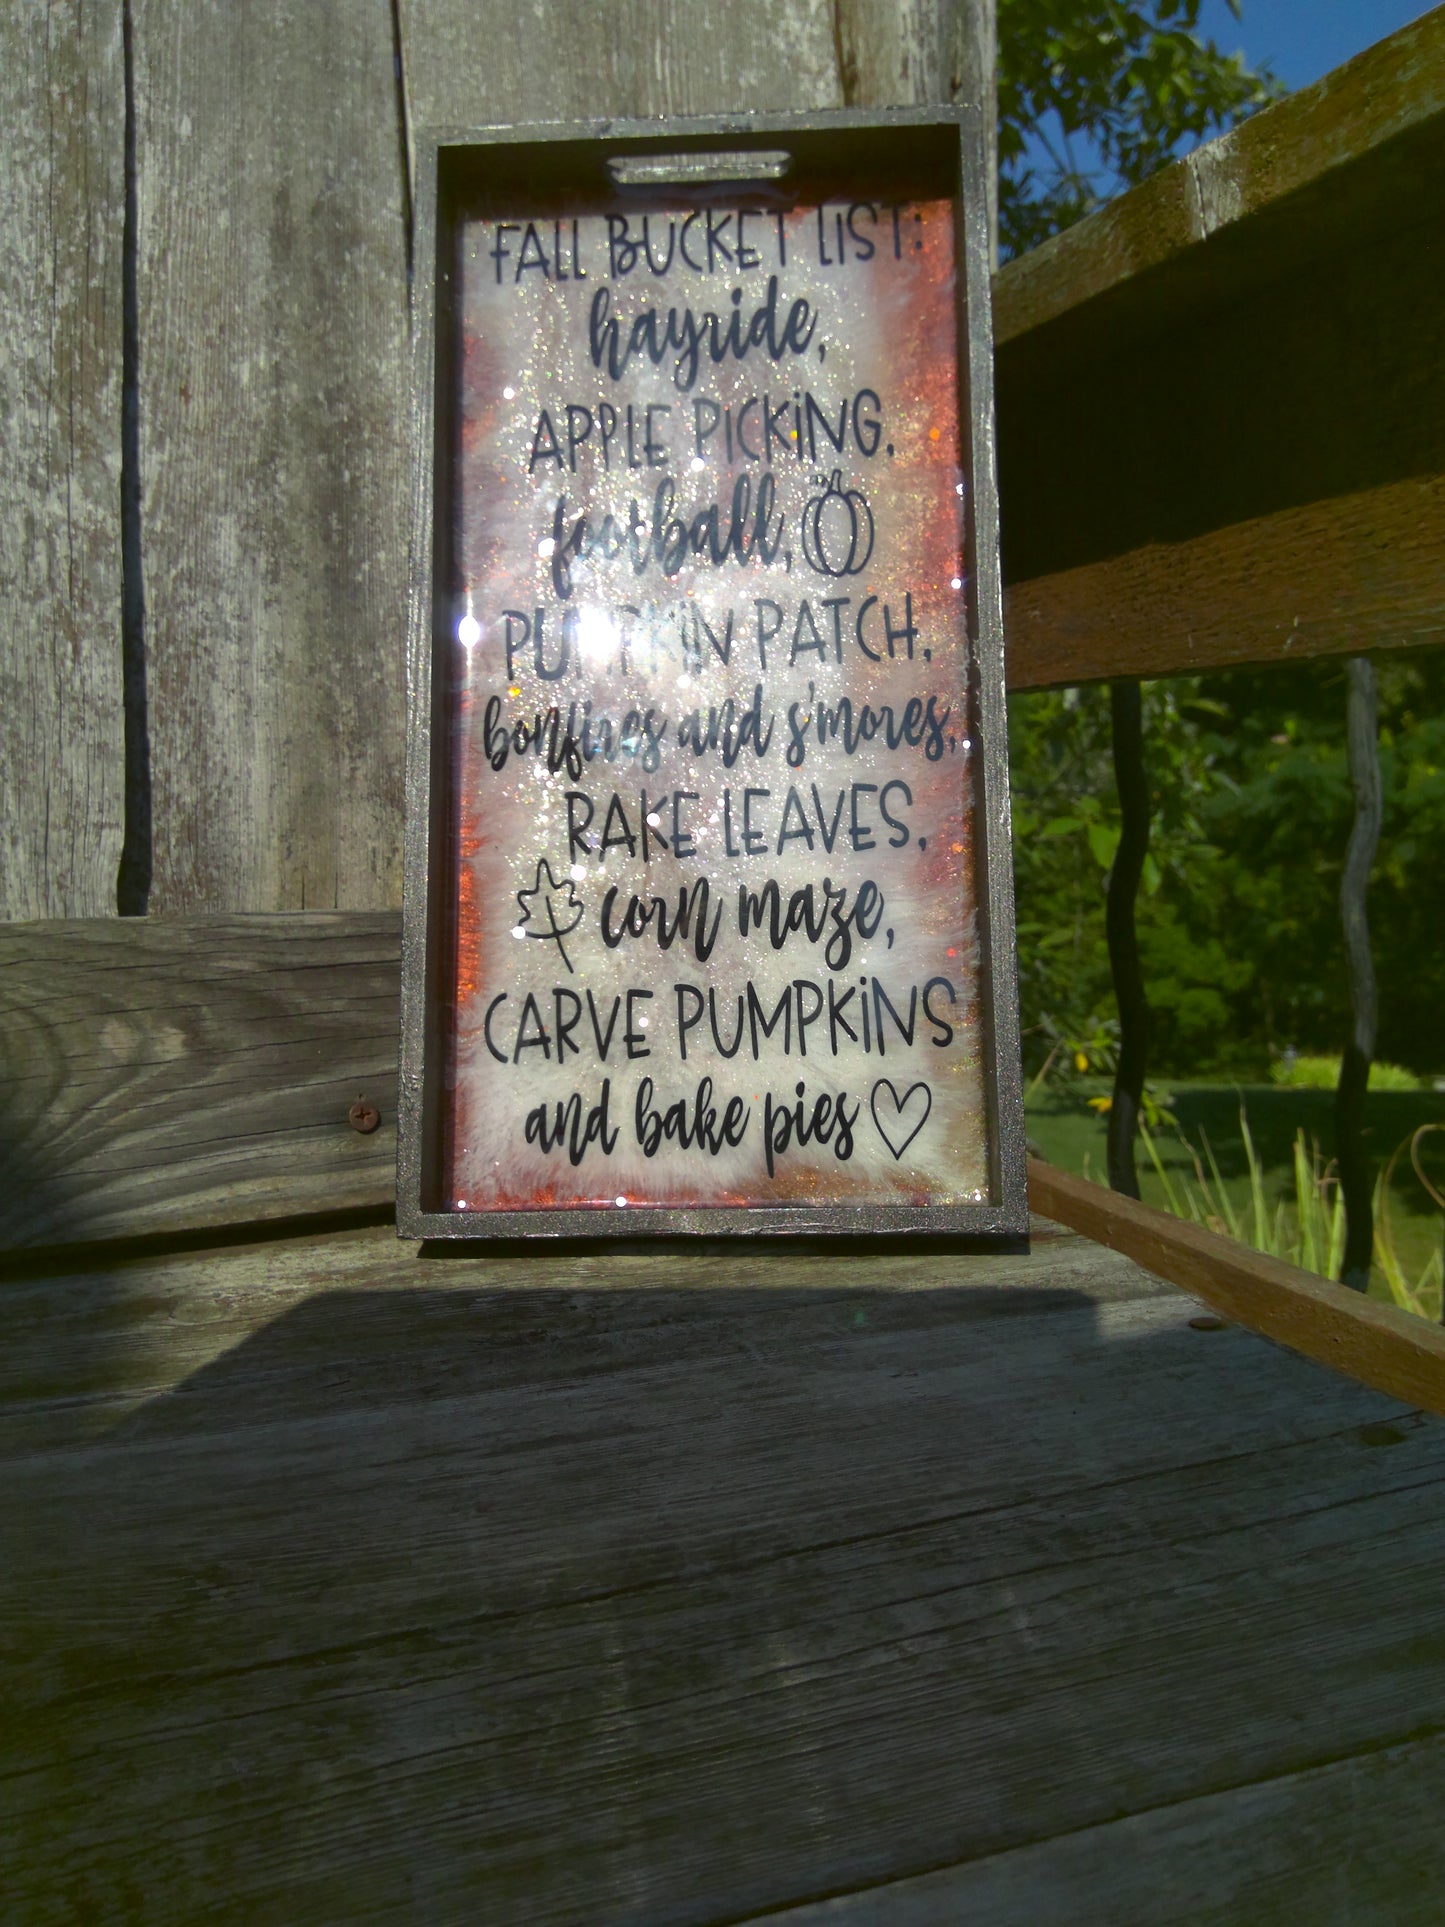 FALL BUCKET LIST:
hayride,
APPLE PICKING,
football,
PUMPKIN PATCH,
bonfires and s'mores,
RAKE LEAVES,
corn maze,
CARVE PUMPKINS
and bake pies